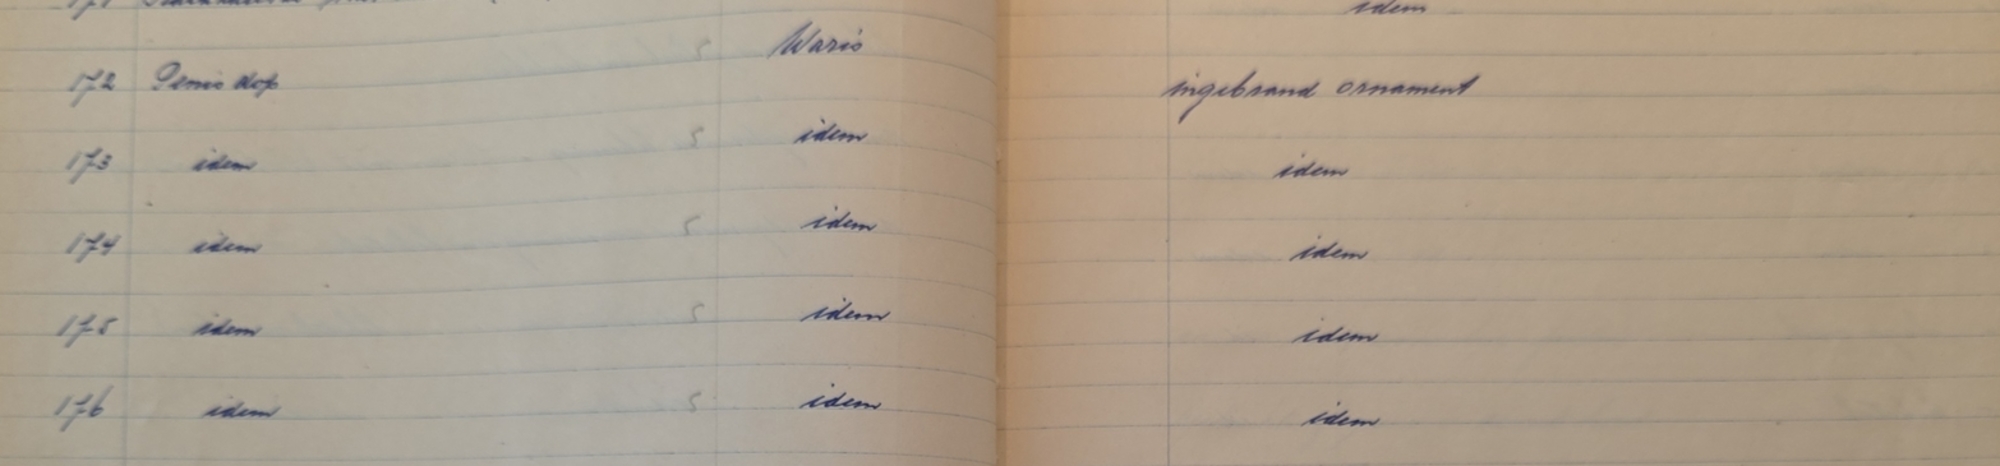 171 idem
172 Penis dop S Waris ingebrand ornament
173 idem S idem idem
174 idem S idem idem
175 idem S idem idem
176 idem S idem idem